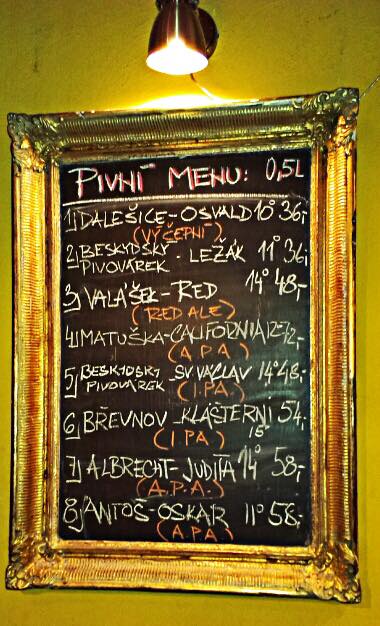 PIVNÍ MENU: 0,5L
1) DALEŠICE - OSVALD 10° 36,-
(VÝČEPNÍ)
2) BESKYDSKÝ PIVOVÁREK - LEŽÁK 11° 36,-
3) VALÁŠEK - RED 14° 48,-
(RED ALE)
4) MATUŠKA - CALIFORNIA 12° 42,-
(APA)
5) BESKYDSKÝ PIVOVÁREK - SV VÁCLAV 14° 48,-
(IPA)
6) BŘEVNOV - KLÁŠTERNÍ 54,-
(IPA) 15°
7) ALBRECHT - JUDITA 14° 58,-
(A.P.A.)
8) ANTOŠ - OSKAR 11° 58,-
(APA)